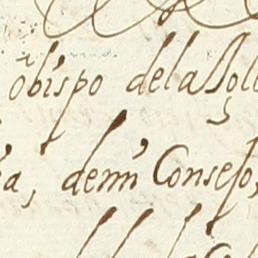 obispo dela
a, demi Consejo,